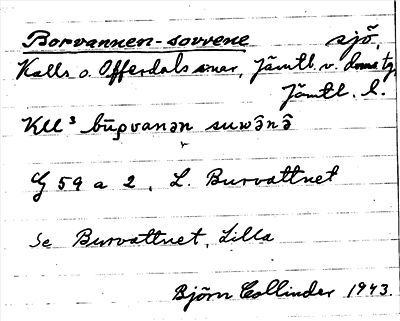 Borvannen-sovvene sjö,
Kalls o. Offerdals snar, Jämtl. v. domstg,
Jämtl. l.
KU³ būpvanən suwənə
G 59 a 2, L. Burvattnet
Se Burvattnet, Lilla
Björn Collinder 1943.